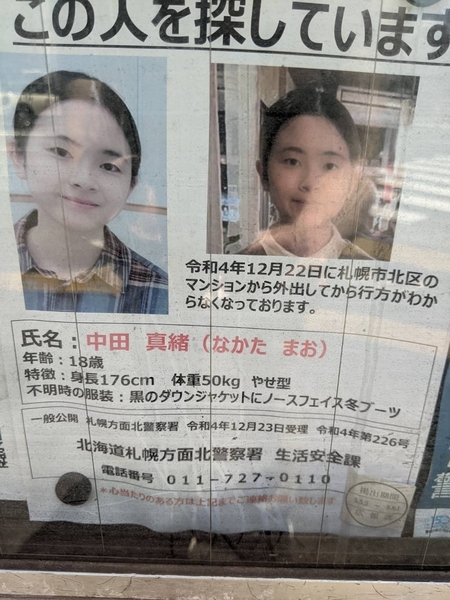 この人を探しています
令和4年12月22日に札幌市北区の
マンションから外出してから行方がわか
らなくなっております。
氏名：中田　真緒（なかた　まお）
年齢：18歳
特徴：身長176cm　体重50kg　やせ型
不明時の服装：黒のダウンジャケットにノースフェイス冬ブーツ
一般公開　札幌方面北警察署　令和4年12月23日受理　令和4年第226号
北海道札幌方面北警察署　生活安全課
電話番号　011-727-0110
＊心当たりのある方は上記までご連絡お願い致します
掲出期間